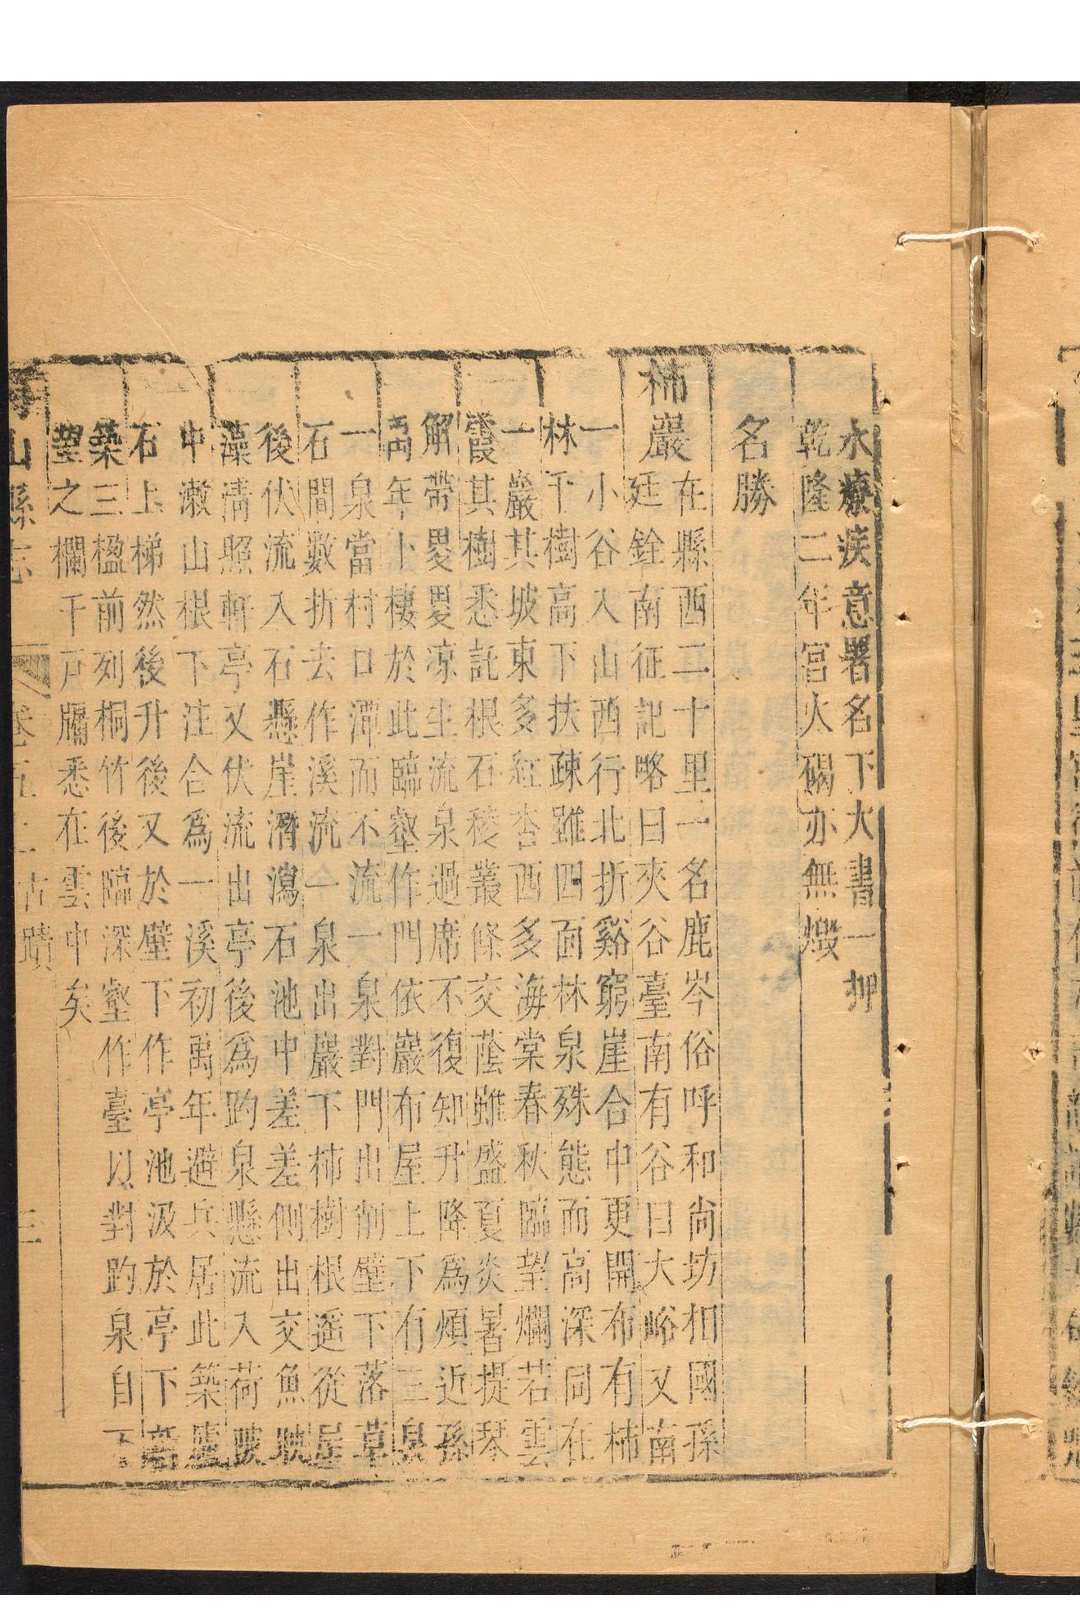 水療疾意署名下大書一押
乾隆二年宮火碣亦無燬
名勝
柿巖在縣西二十里一名鹿岑俗呼和尚坊相國孫
廷銓南征記略曰夾谷臺南有谷曰大峪又南
一小谷入山西行北折谿窮崖合中更開布有柿
林千樹高下扶疎雖四面林泉殊態而高深同在
一巖其坡東多紅杏西多海棠春秋臨望爛若雲
霞其樹悉託根石稜叢條交蔭雖盛夏炎暑提琴
解帶畟畟凉生流泉過席不復知升降為煩近孫
年卜棲於此臨壑作門依巖布屋上下有三泉
一泉當村口渟而不流一泉對門出削壁下落草
石間數折去作溪流一泉出巖下柿樹根遥從崖
後伏流入石懸崖潛瀉石池中差差側出交魚映
藻清照軒亭又伏流出亭後為趵泉懸流入荷陂
中漱山根下注合為一溪初禹年避兵居此築廬
石上梯然後升後又於壁下作亭池汲於亭下
築三楹前列桐竹後臨深壑作臺以對趵泉自下
望之欄干戸牖悉在雲中矣
山縣志 卷五 古蹟 三